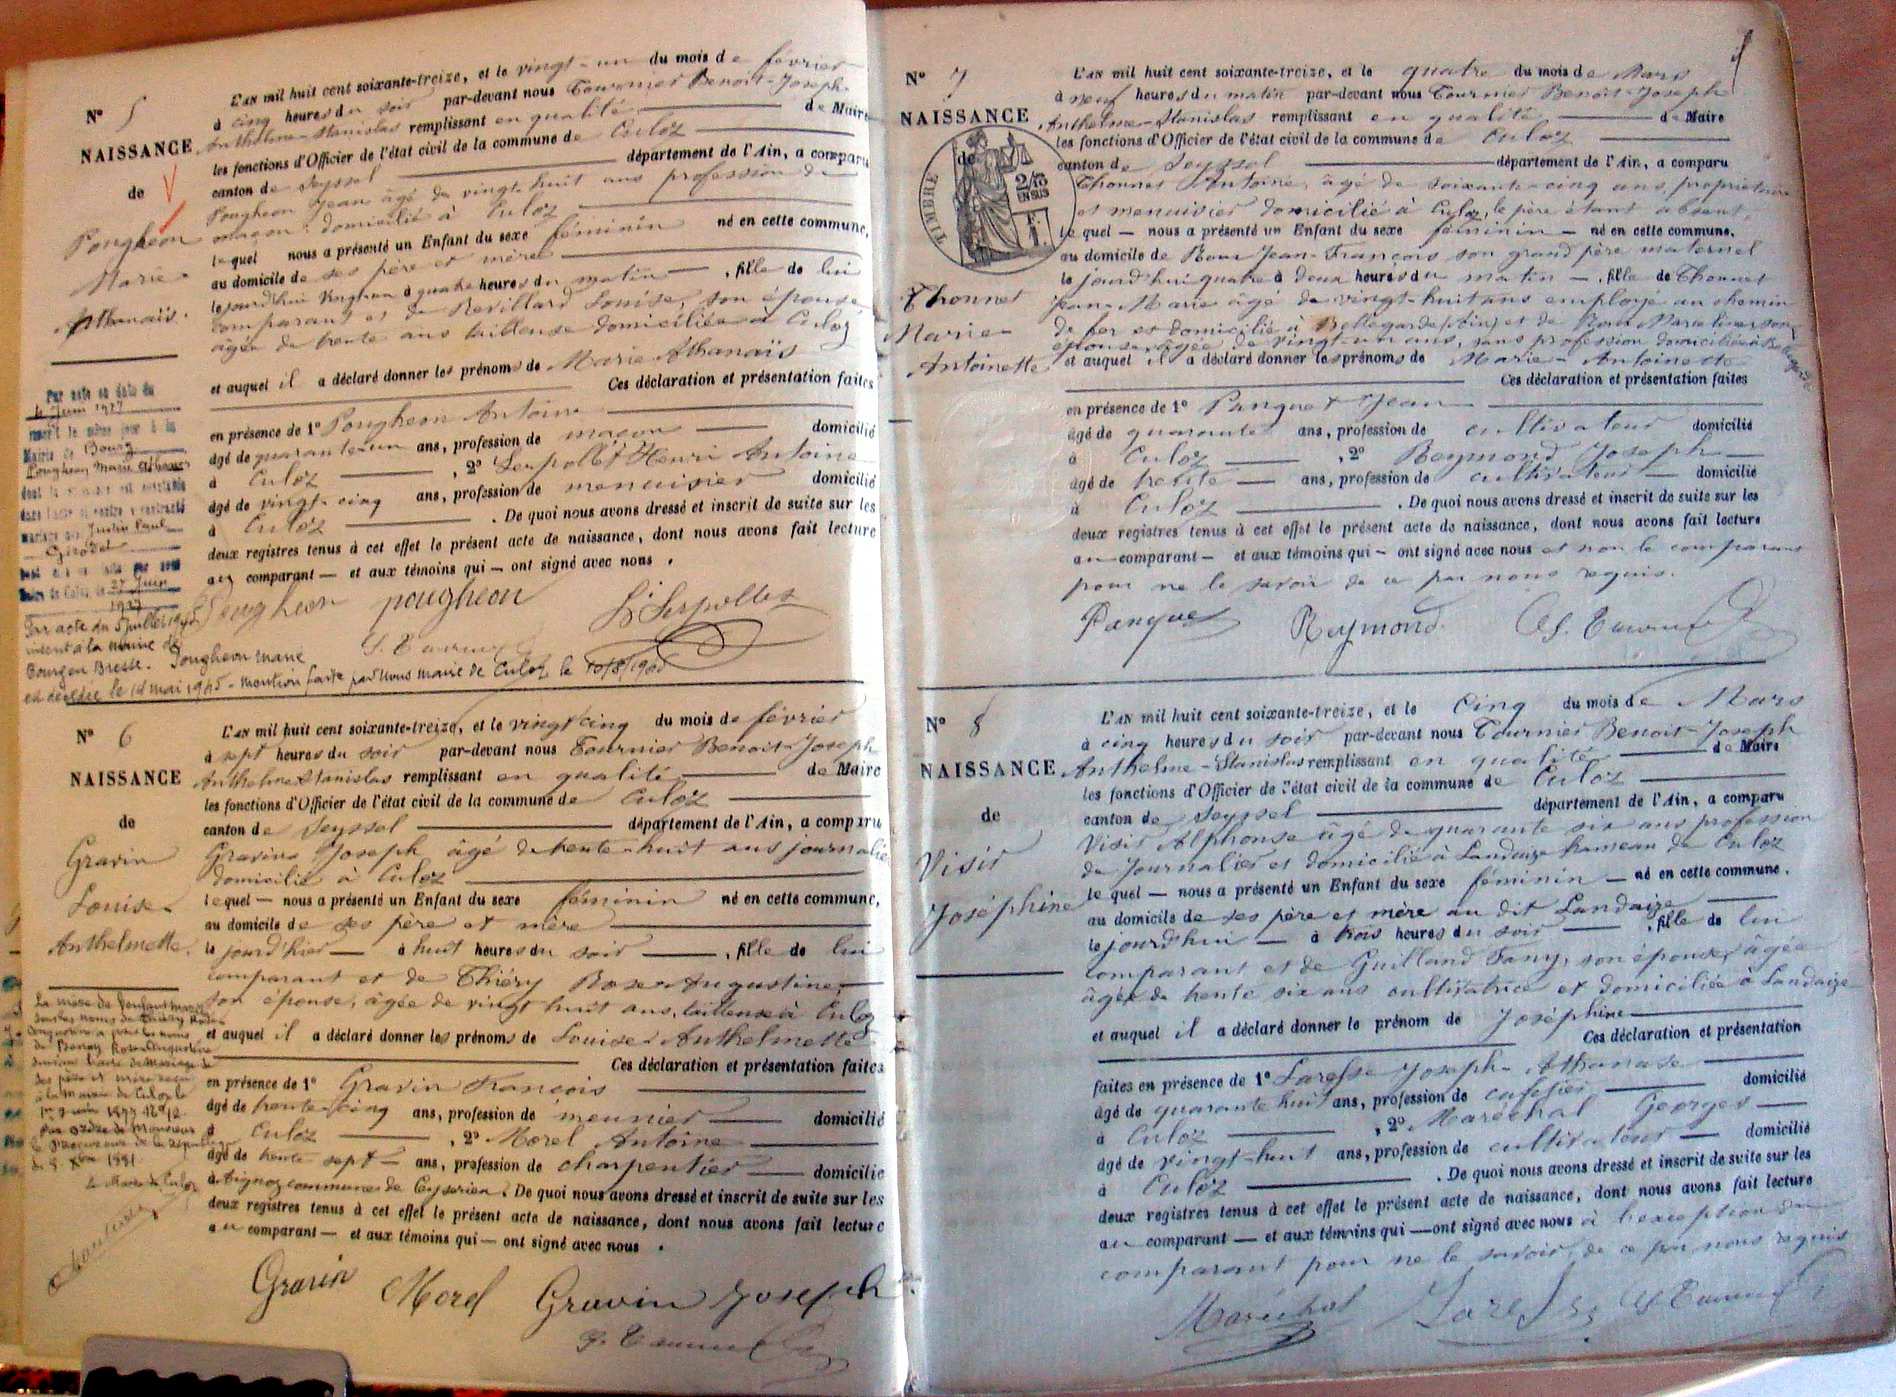 N° 5
NAISSANCE
de
Pougheon
Marie
Athanaïs.
L'AN mil huit cent soixante-treize, et le vingt-un du mois de février
à cinq heures du soir par-devant nous Tournier Benoit-Joseph
Anthelme-Stanislas remplissant en qualité de Maire
les fonctions d'Officier de l'état civil de la commune de Culoz
canton de Seyssel département de l'Ain, a comparu
Pougheon Jean âgé de vingt-huit ans profession de
maçon domicilié à Culoz
lequel nous a présenté un Enfant du sexe féminin né en cette commune,
au domicile de ses père et mère
le jourd'hui vingt-un à quatre heures du matin, fille de lui
comparant et de Revillard Louise, son épouse
âgée de trente ans tailleuse domiciliée à Culoz
et auquel il a déclaré donner les prénoms de Marie Athanaïs
Ces déclaration et présentation faites
en présence de 1° Pougheon Antoine
âgé de quarante-un ans, profession de maçon domicilié
à Culoz, 2° Serpollet Henri Antoine
âgé de vingt-cinq ans, profession de menuisier domicilié
à Culoz. De quoi nous avons dressé et inscrit de suite sur les
deux registres tenus à cet effet le présent acte de naissance, dont nous avons fait lecture
aux comparant — et aux témoins qui — ont signé avec nous.
Pougheon pougheon H. Serpollet
Par acte en date du
4 Juin 1927
inscrit le même jour à la
Mairie de Bourg
Pougheon Marie Athanaïs
Justin Paul
Girodet
27 Juin
1927
Par acte du 5 juillet 1945
inscrit à la mairie de
Bourg en Bresse. Pougheon Marie
est décédée le 14 mai 1945 - mention faite par nous maire de Culoz le 10/8/1945
N° 6
NAISSANCE
de
Gravin
Louise
Anthelmette.
L'AN mil huit cent soixante-treize, et le vingt cinq du mois de février
à sept heures du soir par-devant nous Tournier Benoit-Joseph
Anthelme Stanislas remplissant en qualité de Maire
les fonctions d'Officier de l'état civil de la commune de Culoz
canton de Seyssel département de l'Ain, a comparu
Gravin Joseph âgé de trente-huit ans journalier
domicilié à Culoz
lequel — nous a présenté un Enfant du sexe féminin né en cette commune,
au domicile de ses père et mère
le jourd'hier — à huit heures du soir, fille de lui
comparant et de Thiéry Rose Augustine
son épouse, âgée de vingt huit ans, tailleuse à Culoz
et auquel il a déclaré donner les prénoms de Louise Anthelmette
Ces déclaration et présentation faites
en présence de 1° Gravin François
âgé de trente-cinq ans, profession de meunier domicilié
à Culoz, 2° Morel Antoine
âgé de trente sept ans, profession de charpentier domicilié
à Aignoz commune de Ceyzerieu. De quoi nous avons dressé et inscrit de suite sur les
deux registres tenus à cet effet le présent acte de naissance, dont nous avons fait lecture
au comparant — et aux témoins qui — ont signé avec nous.
Gravin Morel Gravin Joseph
La mère de l'enfant
Rose Augustine
suivant l'acte de mariage de
ses père et mère reçu
à la Mairie de Culoz le
par ordre de Monsieur
le Procureur de la République
1881
Le Maire de Culoz
N° 7
NAISSANCE
de
TIMBRE
2/10
EN SUS
Thonnet
Marie
Antoinette
L'AN mil huit cent soixante-treize, et le quatre du mois de Mars
à neuf heures du matin par-devant nous Tournier Benoit-Joseph
Anthelme-Stanislas remplissant en qualité de Maire
les fonctions d'Officier de l'état civil de la commune de Culoz
canton de Seyssel département de l'Ain, a comparu
Thonnet Antoine, âgé de soixante-cinq ans, propriétaire
et menuisier domicilié à Culoz, le père étant absent,
lequel — nous a présenté un Enfant du sexe féminin — né en cette commune,
au domicile de Roux Jean-François son grand père maternel
le jourd'hui quatre à deux heures du matin —, fille de Thonnet
Jean-Marie âgé de vingt-huit ans employé au chemin
de fer et domicilié à Bellegarde (Ain) et de Roux Marie son
épouse, âgée de vingt-un ans, sans profession domiciliée à Bellegarde
et auquel il a déclaré donner les prénoms de Marie-Antoinette
Ces déclaration et présentation faites
en présence de 1° Panquet Jean
âgé de quarante ans, profession de cultivateur domicilié
à Culoz, 2° Reymond Joseph
âgé de trente — ans, profession de cultivateur — domicilié
à Culoz. De quoi nous avons dressé et inscrit de suite sur les
deux registres tenus à cet effet le présent acte de naissance, dont nous avons fait lecture
au comparant — et aux témoins qui — ont signé avec nous et non le comparant
pour ne le savoir de ce par nous requis.
Panquet Reymond
N° 8
NAISSANCE
de
Visir
Joséphine
L'AN mil huit cent soixante-treize, et le Cinq du mois de Mars
à cinq heures du soir par-devant nous Tournier Benoit-Joseph
Anthelme-Stanislas remplissant en qualité de Maire
les fonctions d'Officier de l'état civil de la commune de Culoz
canton de Seyssel département de l'Ain, a comparu
Visir Alphonse âgé de quarante six ans profession
de Journalier et domicilié à Landaize hameau de Culoz
lequel — nous a présenté un Enfant du sexe féminin — né en cette commune,
au domicile de ses père et mère au dit Landaize
le jourd'hui — à trois heures du soir —, fille de lui
comparant et de Guilland Fany, son épouse, âgée
âgée de trente six ans cultivatrice et domiciliée à Landaize
et auquel il a déclaré donner le prénom de Joséphine
Ces déclaration et présentation
faites en présence de 1° Laresse Joseph-Athanase
âgé de quarante huit ans, profession de cafetier domicilié
à Culoz, 2° Maréchal Georges
âgé de vingt-huit ans, profession de cultivateur — domicilié
à Culoz. De quoi nous avons dressé et inscrit de suite sur les
deux registres tenus à cet effet le présent acte de naissance, dont nous avons fait lecture
au comparant — et aux témoins qui — ont signé avec nous à l'exception du
comparant pour ne le savoir, de ce par nous requis
Maréchal